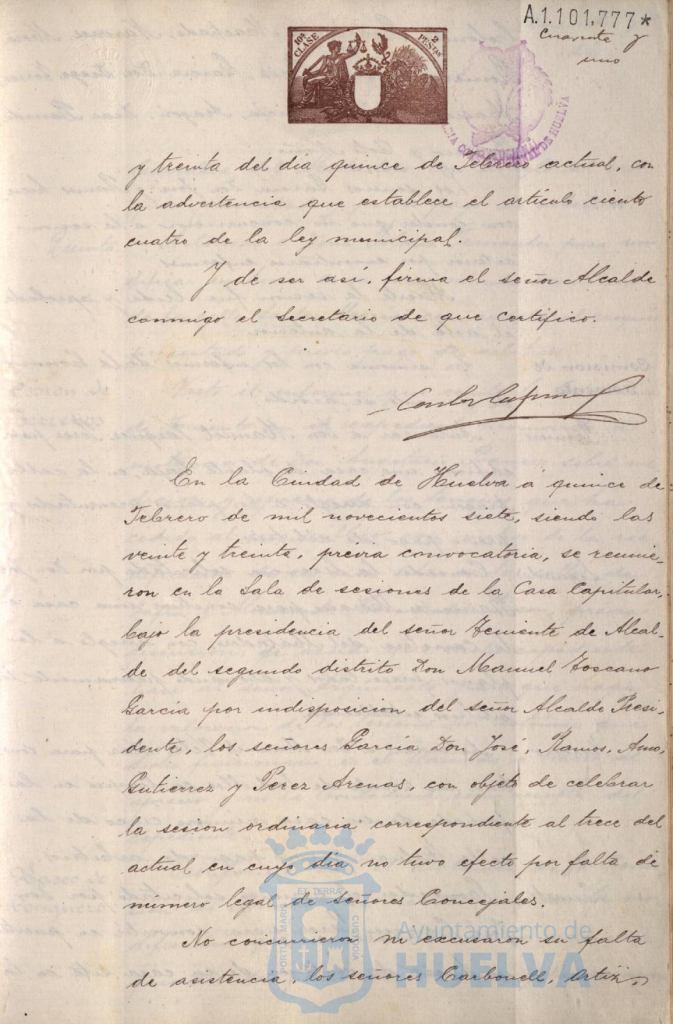 A.1.101,777*
Cuarenta y
uno
10ª CLASE
2 PESETAS
DE HUELVA
y treinta del dia quince de Febrero actual, con
la advertencia que establece el artículo ciento
cuatro de la ley municipal.
Y de ser así, firma el señor Alcalde
conmigo el Secretario de que certifico.
En la Ciudad de Huelva á quince de
Febrero de mil novecientos siete, siendo las
veinte y treinta, previa convocatoria, se reunie-
ron en la Sala de sesiones de la Casa Capitular,
bajo la presidencia del señor Teniente de Alcal-
de del segundo distrito Don Manuel Toscano
García por indisposicion del señor Alcalde Presi-
dente, los señores García Don José, Ramos, Amo,
Gutierrez y Perez Arenas, con objeto de celebrar
la sesion ordinaria correspondiente al trece del
actual en cuyo dia no tuvo efecto por falta de
número legal de señores Concejales.
No concurrieron ni excusaron su falta
de asistencia, los señores Carbonell, Ortiz,
PORTUS MARIS
ET TERRÆ
CUSTODIA
Ayuntamiento de
HUELVA